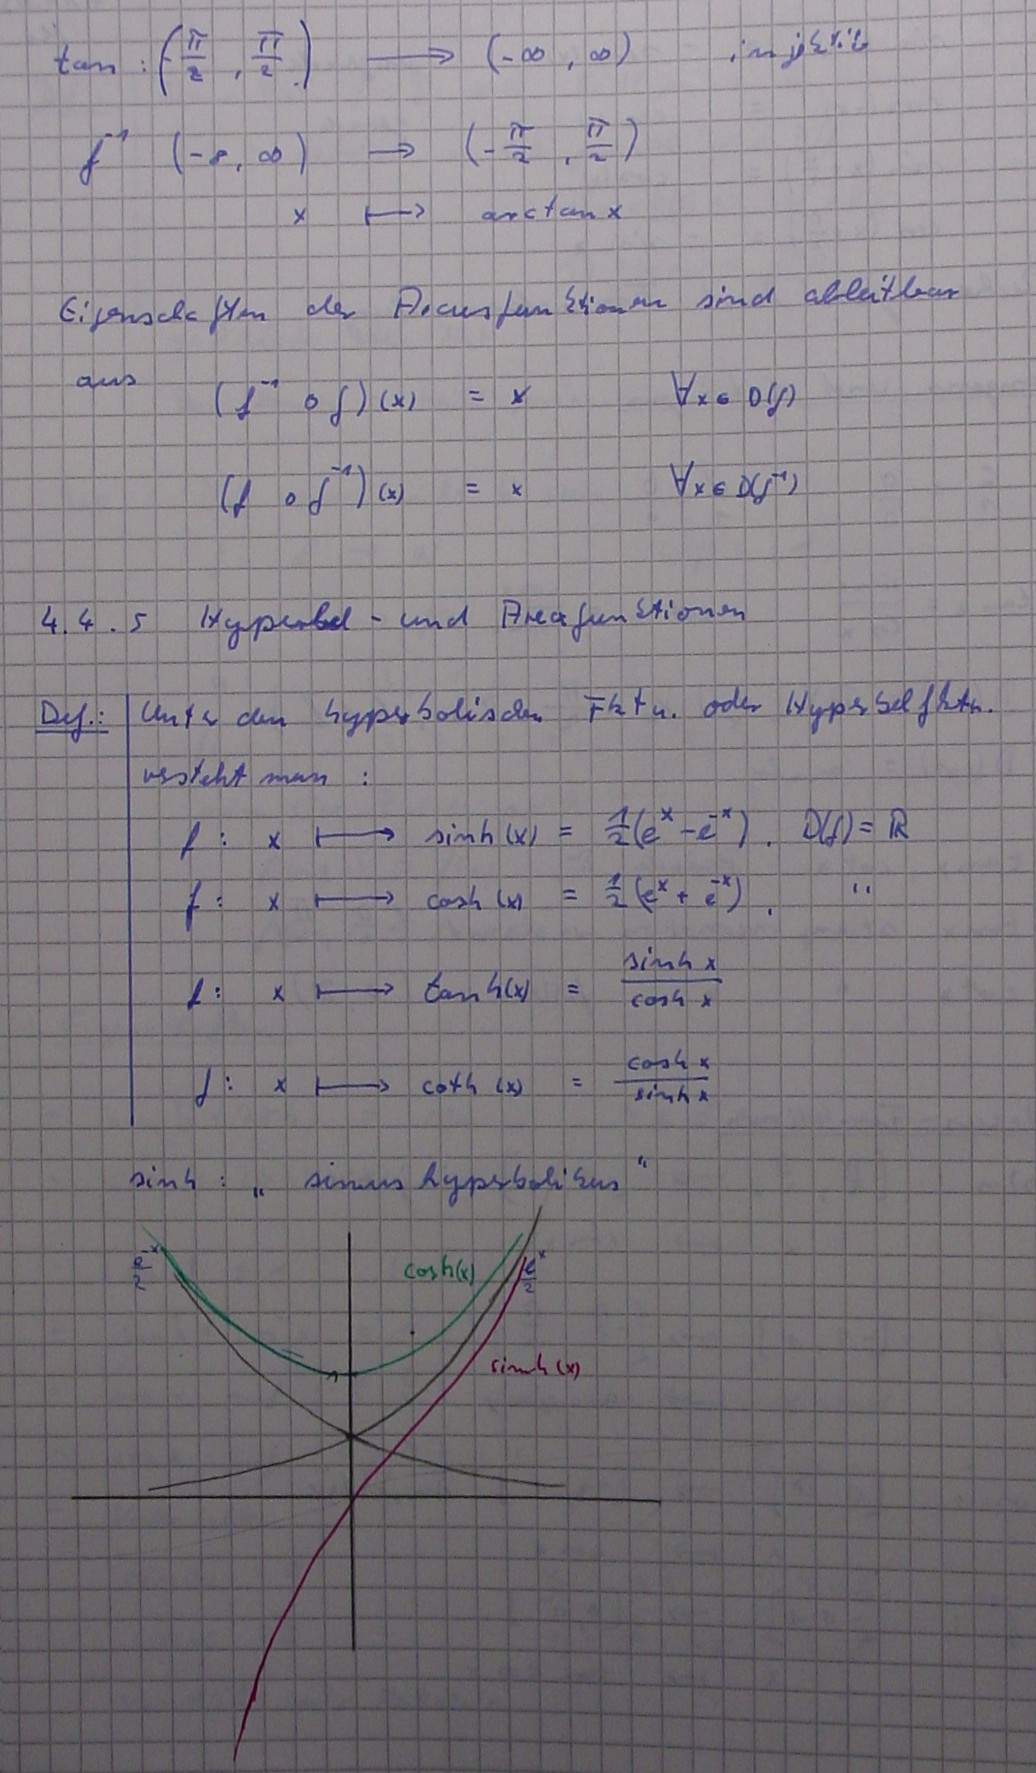 tan : (-π/2 , π/2) ⟶ (-∞ , ∞) injektiv
f⁻¹ (-∞, ∞) → (-π/2 , π/2)
x ↦ arctan x
Eigenschaften der Arcusfunktionen sind ableitbar
aus (f⁻¹ ∘ f)(x) = x ∀x∈ D(f)
(f ∘ f⁻¹)(x) = x ∀x∈ D(f⁻¹)
4.4.5 Hyperbel- und Areafunktionen
Def.: Unter den hyperbolischen Fktn. oder Hyperbelfktn.
versteht man :
f : x ⟼ sinh(x) = 1/2(eˣ - e⁻ˣ). D(f) = ℝ
f : x ⟼ cosh(x) = 1/2(eˣ + e⁻ˣ). "
f : x ⟼ tanh(x) = sinh x / cosh x
f : x ⟼ coth(x) = cosh x / sinh x
sinh : „ sinus hyperbolikus “
e⁻ˣ/2 cosh(x) eˣ/2
sinh(x)
1